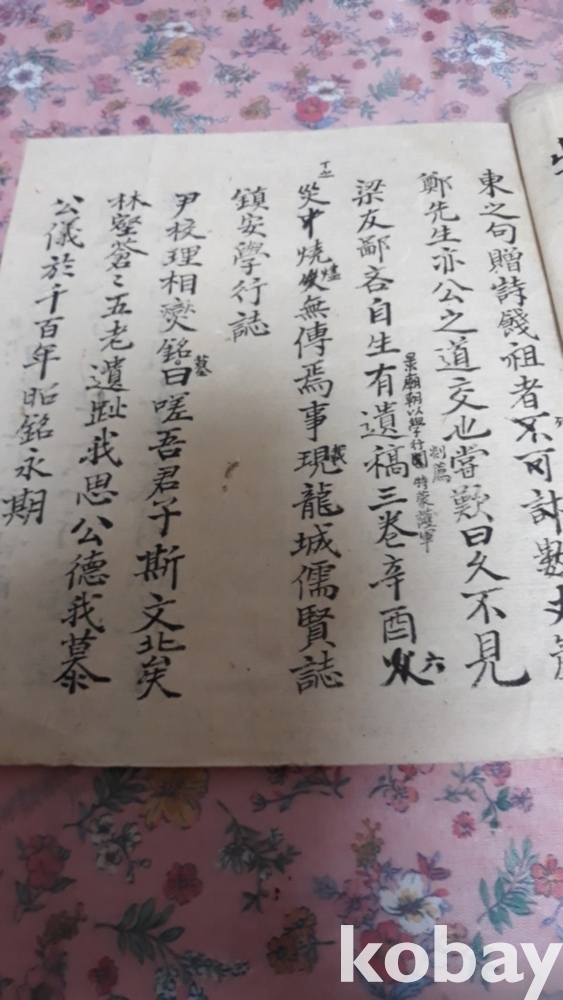 東之句贈詩餞祖者不可計數
鄭先生亦公之道交也嘗歎曰久不見
梁友鄙吝自生有遺稿三卷辛酉火六
景廟朝以學行
剡薦
特蒙
丁丑
災中燒燼無傳焉事現龍城儒賢誌
鎭安學行誌
尹校理相爕銘曰嗟吾君子斯文北矣
墓
林壑蒼〻五老遺趾我思公德我慕
公儀於千百年昭銘永期
kobay